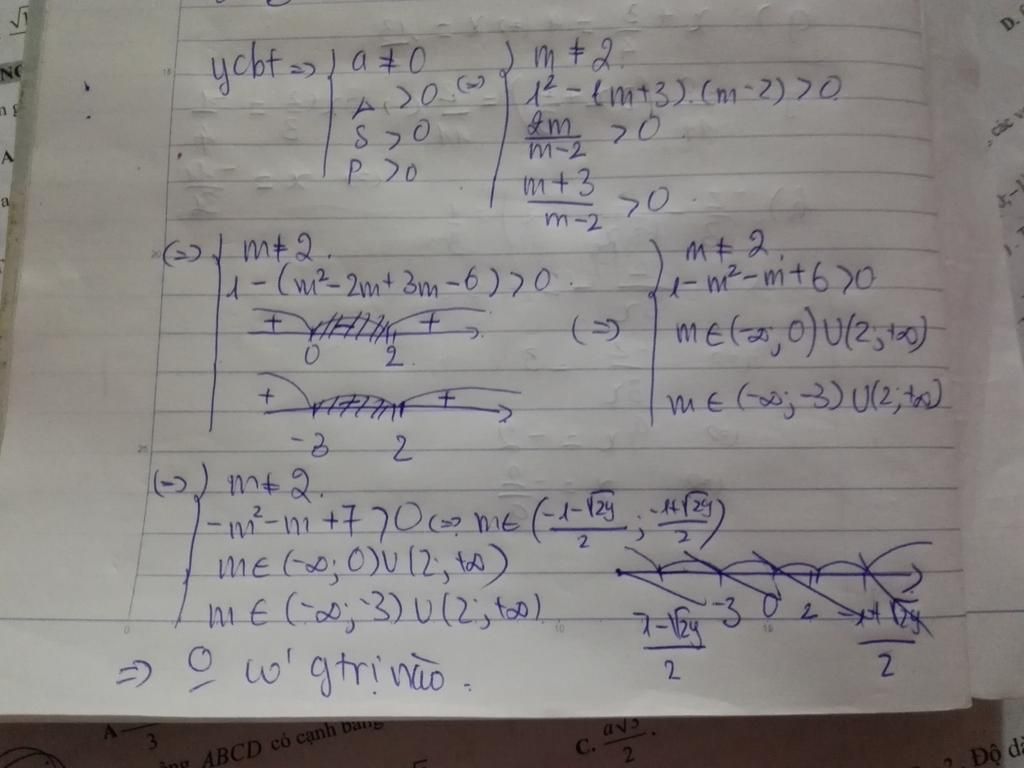 ycbt => { a ≠ 0
Δ > 0
S > 0
P > 0
(=) { m ≠ 2.
1² - (m+3).(m-2) > 0
2m/(m-2) > 0
(m+3)/(m-2) > 0.
(=) { m ≠ 2.
1 - (m² - 2m + 3m - 6) > 0.
+ +
0 2
+ +
-3 2
(=) { m ≠ 2.
1 - m² - m + 6 > 0
m ∈ (-∞; 0) ∪ (2; +∞)
m ∈ (-∞; -3) ∪ (2; +∞)
(=) { m ≠ 2.
-m² - m + 7 > 0 (=) m ∈ ((-1-√29)/2 ; (-1+√29)/2)
m ∈ (-∞; 0) ∪ (2; +∞)
m ∈ (-∞; -3) ∪ (2; +∞)
-3 0 2
=> O có gtrị nào.
A 3
ABCD có cạnh bằng
C. a√3/2.
Độ dà
D.